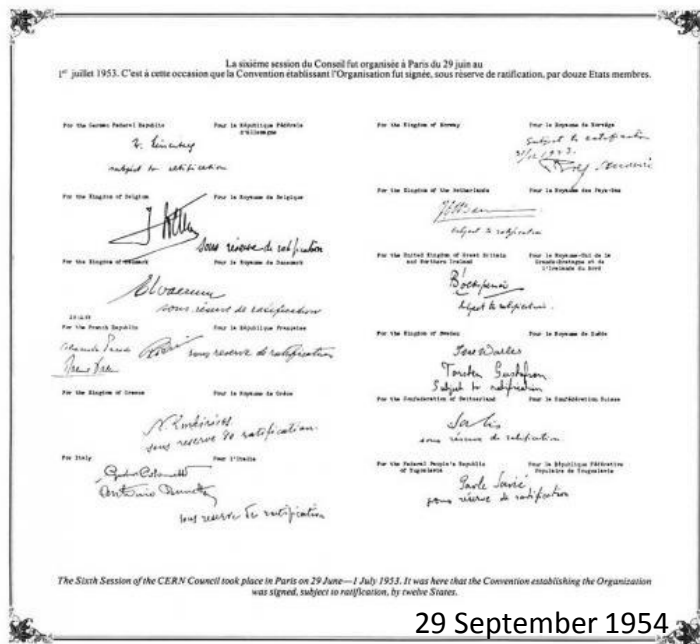 La sixième session du Conseil fut organisée à Paris du 29 juin au
1er juillet 1953. C'est à cette occasion que la Convention établissant l'Organisation fut signée, sous réserve de ratification, par douze Etats membres.
For the German Federal Republic Pour la République Fédérale
d'Allemagne
subject to ratification
For the Kingdom of Belgium Pour le Royaume de Belgique
sous réserve de ratification
For the Kingdom of Denmark Pour le Royaume de Danemark
sous réserve de ratification
For the French Republic Pour la République Française
sous reserve de ratification
For the Kingdom of Greece Pour le Royaume de Grèce
sous reserve de ratification.
For Italy Pour l'Italie
sous reserve de ratification
For the Kingdom of Norway Pour le Royaume de Norvège
Subject to ratification
For the Kingdom of the Netherlands Pour le Royaume des Pays-Bas
subject to ratification
For the United Kingdom of Great Britain Pour le Royaume-Uni de la
and Northern Ireland Grande-Bretagne et de
l'Irlande du Nord
Subject to ratification.
For the Kingdom of Sweden Pour le Royaume de Suède
Torsten Gustafson
Subject to ratification
For the Confederation of Switzerland Pour la Confédération Suisse
sous réserve de ratification.
For the Federal People's Republic Pour la République Fédérative
of Yugoslavia Populaire de Yougoslavie
Pavle Savić
sous réserve de ratification
The Sixth Session of the CERN Council took place in Paris on 29 June—1 July 1953. It was here that the Convention establishing the Organization
was signed, subject to ratification, by twelve States.
29 September 1954